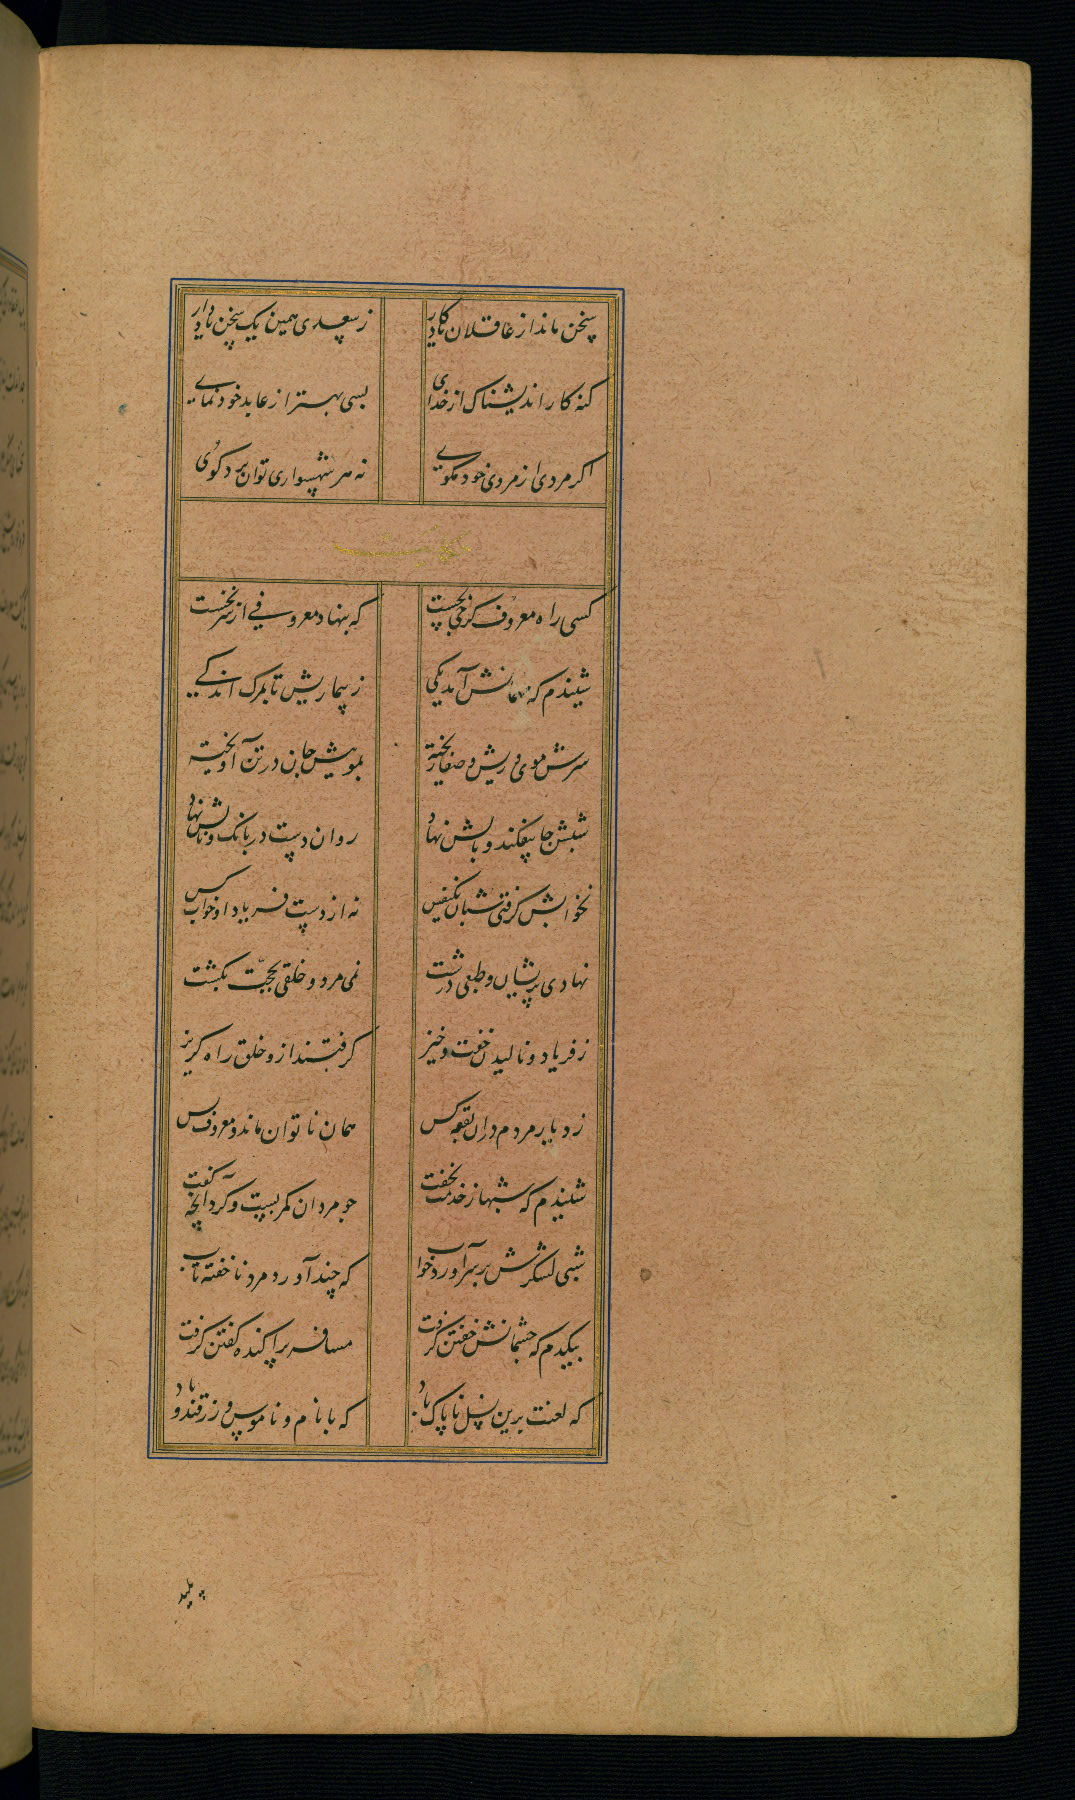 سخن ماند از عاقلان یادگار ز سعدی همین یک سخن یاد دار
کنه کار اندیشناک از خدای بسی بهتر از عابد خود نمای
اگر مردی از مردی خود مگوی نه هر شهسواری توان برد گوی
حکایت
کسی راه معروف کرخی بجست که بنهاد معروفی از سر نخست
شنیدم که مهمانش آمد یکی ز بیماریش تا بمرگ اندکی
سرش موی و رویش صفا ریخته بموییش جان در تن آویخته
شبش جا بیفکند و بالش نهاد روان دست در بانک و نالش نهاد
نه خوابش گرفتی شبان یکنفس نه از دست فریاد او خواب کس
نهادی پریشان و طبعی درشت نمی مرد و خلقی بحجت بکشت
ز فریاد و نالیدن و خفت و خیز گرفتند ازو خلق راه گریز
ز دیار مردم دران بقعه کس همان ناتوان ماند و معروف بس
شنیدم که شبها ز خدمت نخفت چو مردان کمر بست و کرد آنچه گفت
شبی لشکرش بر سر آورد خواب که چند آورد مرد ناخفته تاب
بیکدم که چشمانش خفتن گرفت مسافر پراکنده گفتن گرفت
که لعنت برین نسل ناپاک باد که با نام و ناموس و زرقند و باد
پلید